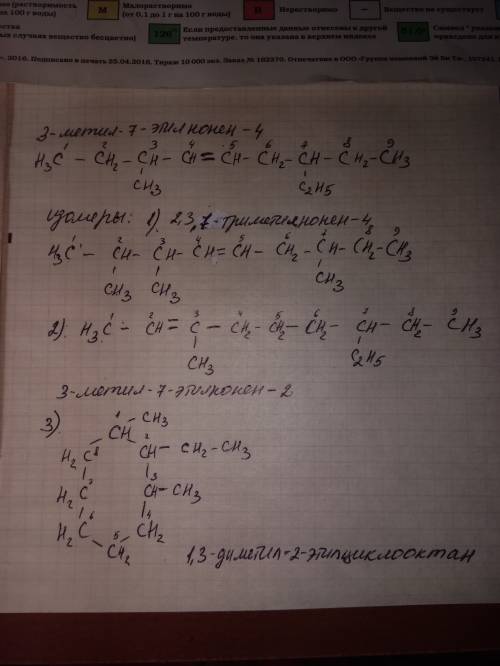 ые (растворимость
на 100 г воды)
М
Малорастворимые
(от 0,1 до 1 г на 100 г воды)
Н
Нерастворимые
—
Вещество не существует
ства
ых случаях вещество бесцветно)
120
Если предоставленные данные отнесены к другой
температуре, то она указана в верхнем индексе
. 2016. Подписано в печать 25.04.2016. Тираж 10 000 экз. Заказ № 182370. Отпечатано в ООО
3-метил-7-этилнонен-4
1 2 3 4 5 6 7 8 9
H3C - CH2 - CH - CH = CH - CH2 - CH - CH2 - CH3
CH3 C2H5
изомеры: 1). 2,3,7-триметилнонен-4
1 2 3 4 5 6 7 8 9
H3C - CH - CH - CH = CH - CH2 - CH - CH2 - CH3
CH3 CH3 CH3
1 2 3 4 5 6 7 8 9
2). H3C - CH = C - CH2 - CH2 - CH2 - CH - CH2 - CH3
CH3 C2H5
3-метил-7-этилнонен-2
3).
1 CH CH3
H2C 8 2 CH - CH2 - CH3
H2C 7 3 CH - CH3
H2C 6 4 CH2
5 CH2
1,3-диметил-2-этилциклооктан